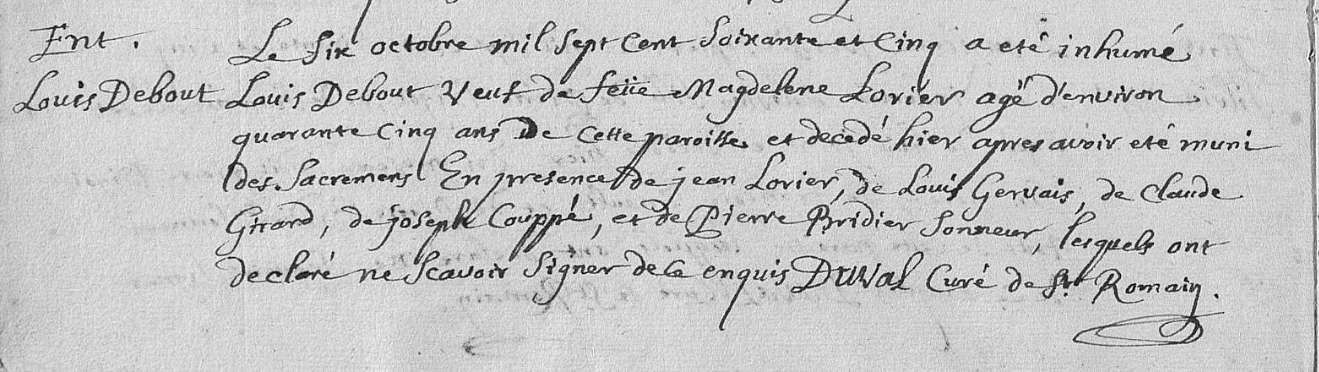 Ent.
Le six octobre mil sept cent soixante et cinq a eté inhumé
Louis Debout
Louis Debout veuf de feüe Magdelene Lorier agé d'environ
quarante cinq ans De cette paroisse et decedé hier apres avoir eté muni
des Sacremens En presence de jean Lorier, de Louis Gervais, de Claude
Girard, de joseph Couppé, et de Pierre Bridier Sonneur, lesquels ont
declaré ne scavoir signer de ce enquis Duval Curé de St Romain.